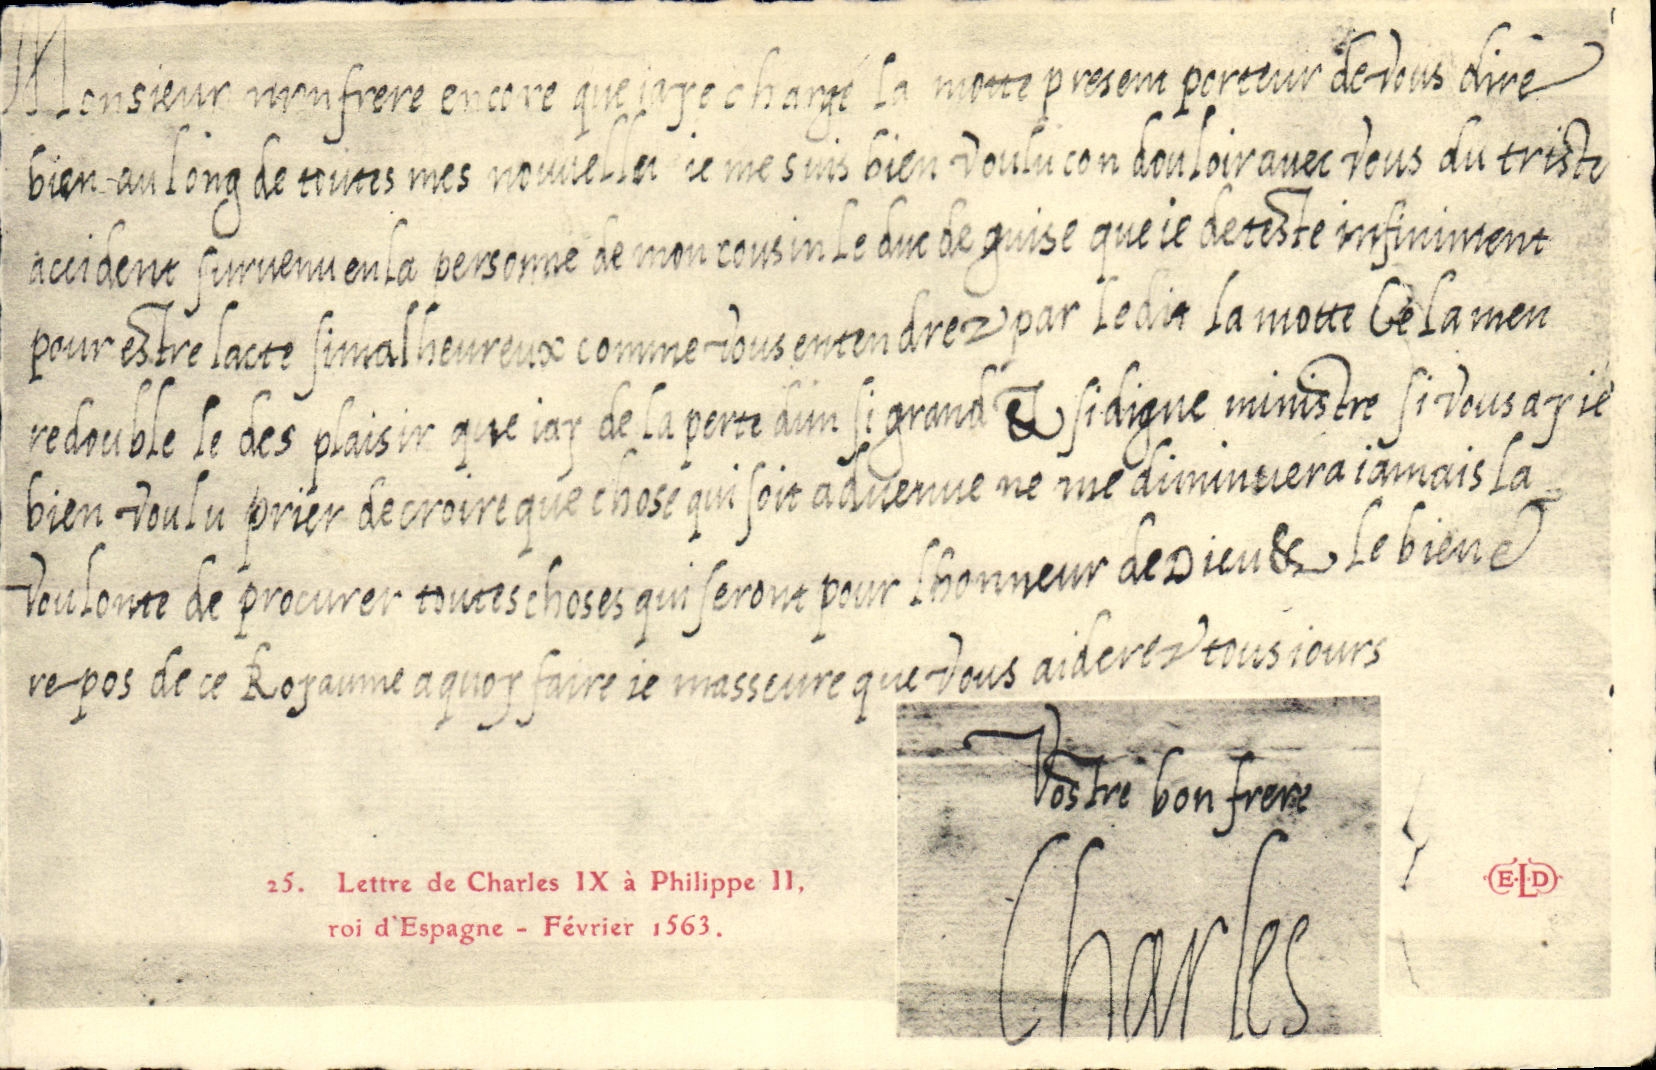 Monsieur mon frere encore que iaye chargé la motte present porteur de vous dire
bien au long de toutes mes nouuelles ie me suis bien voulu condouloir auec vous du triste
accident suruenu en la personne de mon cousin le duc de guise que ie deteste infiniment
pour estre lacte si malheureux comme vous entendrez par ledit la motte Cela men
redouble le desplaisir que iay de la perte dun si grand & si digne ministre si vous ay ie
bien voulu prier de croire que chose qui soit aduenue ne me diminuera iamais la
voulonte de procurer toutes choses qui seront pour lhonneur de Dieu & le bien et
repos de ce Royaume a quoy faire ie masseure que vous aiderez tousiours
Vostre bon frere
Charles
25. Lettre de Charles IX à Philippe II,
roi d'Espagne - Février 1563.
E.L.D